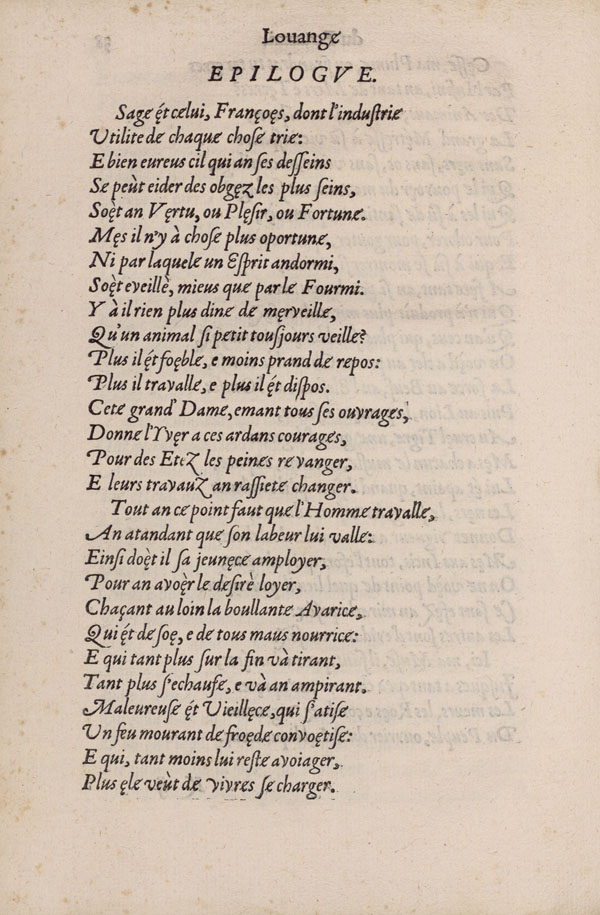 Louange
EPILOGVE.
Sage ę́t celui, Françoęs, dont l'industrie
Vtilite de chaque chose trie:
E bien eureus cil qui an ses desseins
Se peùt eider des obgęz les plus seins,
Soę̀t an Vęrtu, ou Plęsir, ou Fortune.
Męs il n'y à chose plus oportune,
Ni par laquele un Esprit andormi,
Soę̀t eveillè, mieus que par le Fourmi.
Y à il rien plus dine de męrveille,
Qu'un animal si petit tousjours veille?
Plus il ę́t foęble, e moins prand de repos:
Plus il travalle, e plus il ę́t dispos.
Cete grand' Dame, emant tous ses ouvrages,
Donne l'Yvęr a ces ardans courages,
Pour des Etez les peines revanger,
E leurs travauz an rassiete changer.
Tout an ce point faut que l'Homme travalle,
An atandant que son labeur lui valle:
Einsi doę̀t il sa jeunęce amployer,
Pour an avoęr le desirè loyer,
Chaçant au loin la boullante Avarice,
Qui ę́t de soę, e de tous maus nourrice:
E qui tant plus sur la fin và tirant,
Tant plus s'echaufe, e và an ampirant.
Maleureuse ę́t Vieillęce, qui s'atise
Un feu mourant de froęde convoętise:
E qui, tant moins lui reste a voiager,
Plus ęle veùt de vivres se charger.